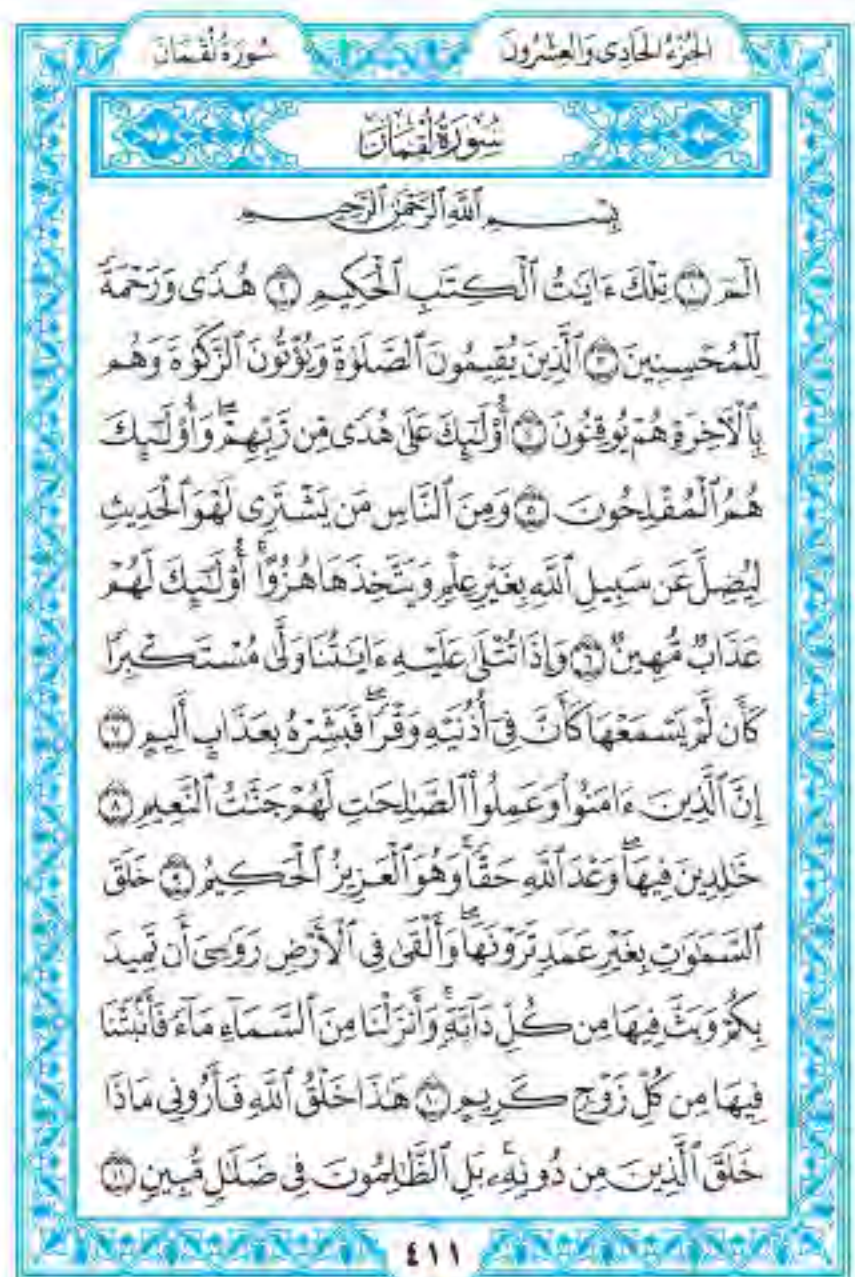 الجزء الحادى والعشرون
سورة لقمان
سُورَةُ لُقْمَانَ
بِسْمِ ٱللَّهِ ٱلرَّحْمَٰنِ ٱلرَّحِيمِ
الٓمٓ ١ تِلْكَ ءَايَٰتُ ٱلْكِتَٰبِ ٱلْحَكِيمِ ٢ هُدًى وَرَحْمَةً
لِّلْمُحْسِنِينَ ٣ ٱلَّذِينَ يُقِيمُونَ ٱلصَّلَوٰةَ وَيُؤْتُونَ ٱلزَّكَوٰةَ وَهُم
بِٱلْءَاخِرَةِ هُمْ يُوقِنُونَ ٤ أُو۟لَٰٓئِكَ عَلَىٰ هُدًى مِّن رَّبِّهِمْ ۖ وَأُو۟لَٰٓئِكَ
هُمُ ٱلْمُفْلِحُونَ ٥ وَمِنَ ٱلنَّاسِ مَن يَشْتَرِى لَهْوَ ٱلْحَدِيثِ
لِيُضِلَّ عَن سَبِيلِ ٱللَّهِ بِغَيْرِ عِلْمٍ وَيَتَّخِذَهَا هُزُوًا ۚ أُو۟لَٰٓئِكَ لَهُمْ
عَذَابٌ مُّهِينٌ ٦ وَإِذَا تُتْلَىٰ عَلَيْهِ ءَايَٰتُنَا وَلَّىٰ مُسْتَكْبِرًا
كَأَن لَّمْ يَسْمَعْهَا كَأَنَّ فِىٓ أُذُنَيْهِ وَقْرًا ۖ فَبَشِّرْهُ بِعَذَابٍ أَلِيمٍ ٧
إِنَّ ٱلَّذِينَ ءَامَنُوا۟ وَعَمِلُوا۟ ٱلصَّٰلِحَٰتِ لَهُمْ جَنَّٰتُ ٱلنَّعِيمِ ٨
خَٰلِدِينَ فِيهَا ۖ وَعْدَ ٱللَّهِ حَقًّا ۚ وَهُوَ ٱلْعَزِيزُ ٱلْحَكِيمُ ٩ خَلَقَ
ٱلسَّمَٰوَٰتِ بِغَيْرِ عَمَدٍ تَرَوْنَهَا ۖ وَأَلْقَىٰ فِى ٱلْأَرْضِ رَوَٰسِىَ أَن تَمِيدَ
بِكُمْ وَبَثَّ فِيهَا مِن كُلِّ دَآبَّةٍ ۚ وَأَنزَلْنَا مِنَ ٱلسَّمَآءِ مَآءً فَأَنۢبَتْنَا
فِيهَا مِن كُلِّ زَوْجٍ كَرِيمٍ ١٠ هَٰذَا خَلْقُ ٱللَّهِ فَأَرُونِى مَاذَا
خَلَقَ ٱلَّذِينَ مِن دُونِهِۦ ۚ بَلِ ٱلظَّٰلِمُونَ فِى ضَلَٰلٍ مُّبِينٍ ١١
٤١١